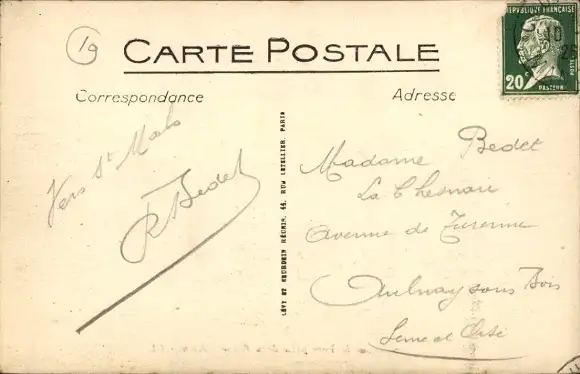 19
CARTE POSTALE
Correspondance
Adresse
RÉPUBLIQUE FRANÇAISE
POSTES
20c
PASTEUR
10
Vers St Malo
R Bedet
LÉVY ET NEURDEIN RÉUNIS, 44, RUE LETELLIER, PARIS
Madame Bedet
La Chesnaie
Avenue de Turenne
Aulnay sous Bois
Seine et Oise